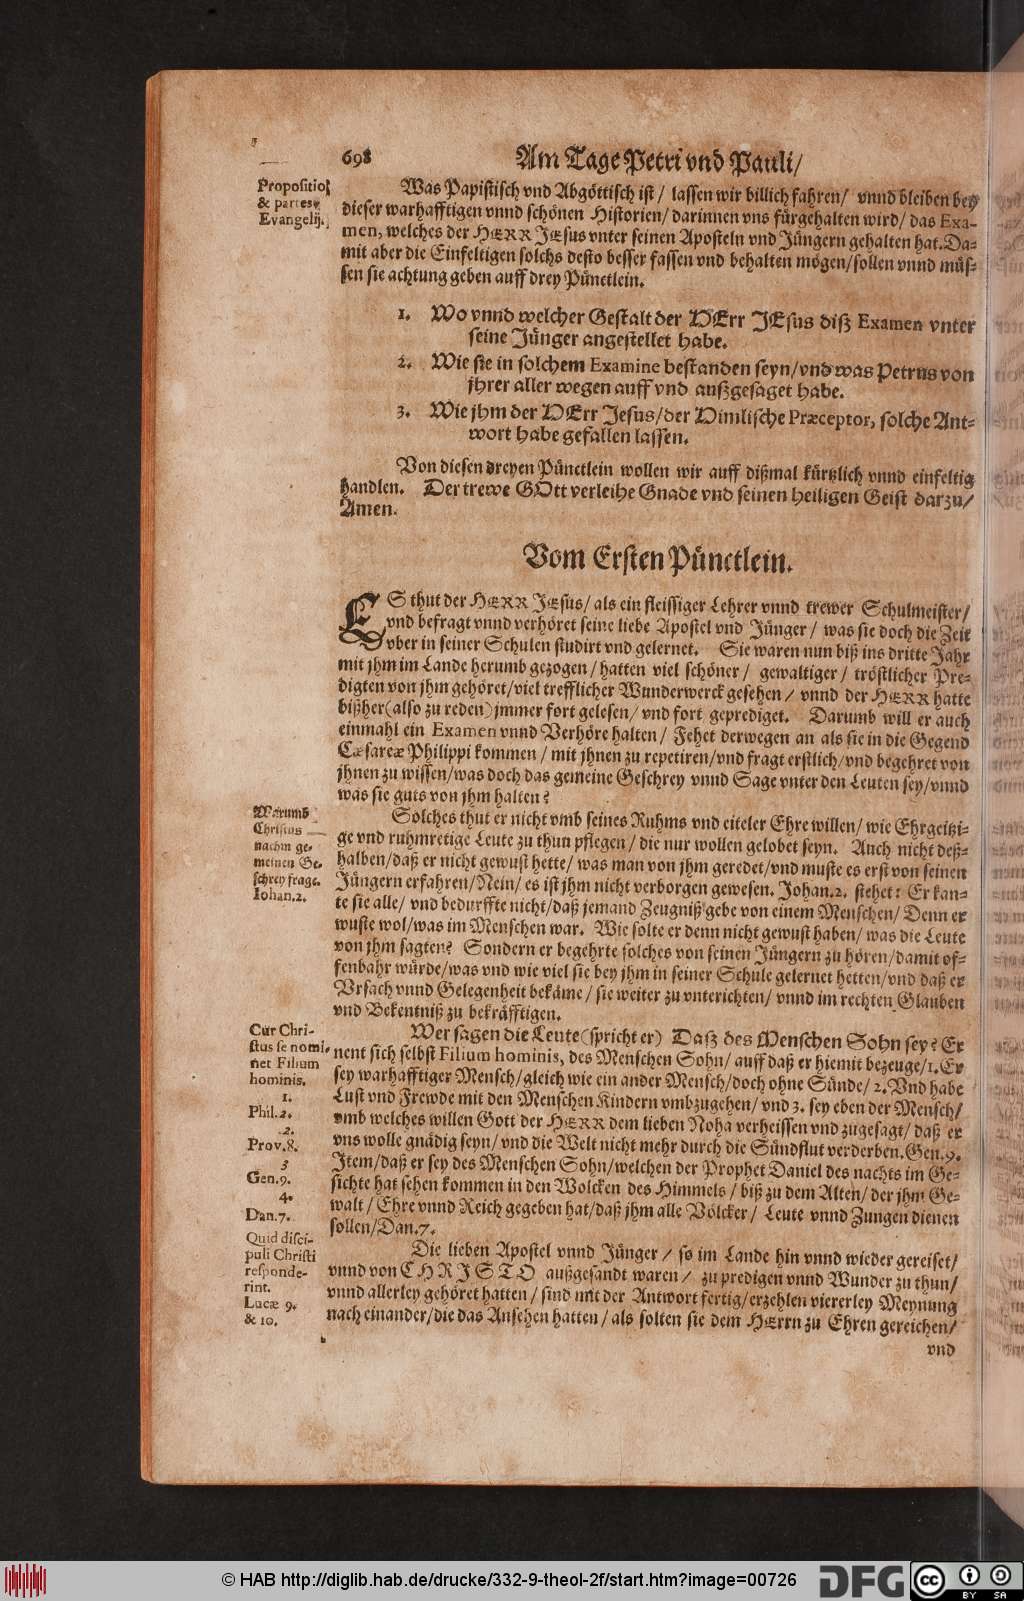 698
Am Tage Petri vnd Pauli/
Propositio
& partes
Evangelij.
Was Papistisch vnd Abgöttisch ist/ lassen wir billich fahren/ vnnd bleiben bey
dieser warhafftigen vnnd schönen Historien/ darinnen vns fürgehalten wird/ das Exa-
men, welches der HERR JEsus vnter seinen Aposteln vnd Jüngern gehalten hat. Da-
mit aber die Einfeltigen solchs desto besser fassen vnd behalten mögen/ sollen vnnd müs-
sen sie achtung geben auff drey Pünctlein.
1. Wo vnnd welcher Gestalt der HErr JEsus diß Examen vnter
seine Jünger angestellet habe.
2. Wie sie in solchem Examine bestanden seyn/ vnd was Petrus von
jhrer aller wegen auff vnd außgesaget habe.
3. Wie jhm der HErr Jesus/ der Himlische Præceptor, solche Ant-
wort habe gefallen lassen.
Von diesen dreyen Pünctlein wollen wir auff dißmal kürtzlich vnnd einfeltig
handlen. Der trewe GOtt verleihe Gnade vnd seinen heiligen Geist darzu/
Amen.
Vom Ersten Pünctlein.
ES thut der HERR JEsus/ als ein fleissiger Lehrer vnnd trewer Schulmeister/
vnd befragt vnnd verhöret seine liebe Apostel vnd Jünger/ was sie doch die Zeit
vber in seiner Schulen studirt vnd gelernet. Sie waren nun biß ins dritte Jahr
mit jhm im Lande herumb gezogen/ hatten viel schöner/ gewaltiger/ tröstlicher Pre-
digten von jhm gehöret/ viel trefflicher Wunderwerck gesehen/ vnnd der HERR hatte
bißher (also zu reden) jmmer fort gelesen/ vnd fort geprediget. Darumb will er auch
einmahl ein Examen vnnd Verhöre halten/ Fehet derwegen an als sie in die Gegend
Cæsareæ Philippi kommen/ mit jhnen zu repetiren/ vnd fragt erstlich/ vnd begehret von
jhnen zu wissen/ was doch das gemeine Geschrey vnnd Sage vnter den Leuten sey/ vnnd
was sie guts von jhm halten?
Warumb
Christus
nachm ge-
meinen Ge-
schrey frage.
Iohan. 2.
Solches thut er nicht vmb seines Ruhms vnd eiteler Ehre willen/ wie Ehrgeitzi-
ge vnd ruhmretige Leute zu thun pflegen/ die nur wollen gelobet seyn. Auch nicht deß-
halben/ daß er nicht gewust hette/ was man von jhm geredet/ vnd muste es erst von seinen
Jüngern erfahren/ Nein/ es ist jhm nicht verborgen gewesen. Johan. 2. stehet: Er kan-
te sie alle/ vnd bedurffte nicht/ daß jemand Zeugniß gebe von einem Menschen/ Denn er
wuste wol/ was im Menschen war. Wie solte er denn nicht gewust haben/ was die Leute
von jhm sagten? Sondern er begehrte solches von seinen Jüngern zu hören/ damit of-
fenbahr würde/ was vnd wie viel sie bey jhm in seiner Schule gelernet hetten/ vnd daß er
Vrsach vnnd Gelegenheit bekäme/ sie weiter zu vnterichten/ vnnd im rechten Glauben
vnd Bekentniß zu bekräfftigen.
Cur Chri-
stus se nomi-
net Filium
hominis.
1.
Phil. 2.
2.
Prov. 8.
3
Gen. 9.
4.
Dan. 7.
Wer sagen die Leute (spricht er) Daß des Menschen Sohn sey? Er
nent sich selbst Filium hominis, des Menschen Sohn/ auff daß er hiemit bezeuge/ 1. Er
sey warhafftiger Mensch/ gleich wie ein ander Mensch/ doch ohne Sünde/ 2. Vnd habe
Lust vnd Frewde mit den Menschen Kindern vmbzugehen/ vnd 3. sey eben der Mensch/
vmb welches willen Gott der HERR dem lieben Noha verheissen vnd zugesagt/ daß er
vns wolle gnädig seyn/ vnd die Welt nicht mehr durch die Sündflut verderben. Gen. 9.
Item/ daß er sey des Menschen Sohn/ welchen der Prophet Daniel des nachts im Ge-
sichte hat sehen kommen in den Wolcken des Himmels/ biß zu dem Alten/ der jhm Ge-
walt/ Ehre vnnd Reich gegeben hat/ daß jhm alle Völcker/ Leute vnnd Zungen dienen
sollen/ Dan. 7.
Quid disci-
puli Christi
responde-
rint.
Lucæ 9.
& 10.
Die lieben Apostel vnnd Jünger/ so im Lande hin vnnd wieder gereiset/
vnnd von CHRISTO außgesandt waren/ zu predigen vnnd Wunder zu thun/
vnnd allerley gehöret hatten/ sind mit der Antwort fertig/ erzehlen viererley Meynung
nach einander/ die das Ansehen hatten/ als solten sie dem HErrn zu Ehren gereichen/
vnd
© HAB http://diglib.hab.de/drucke/332-9-theol-2f/start.htm?image=00726
DFG
cc BY SA